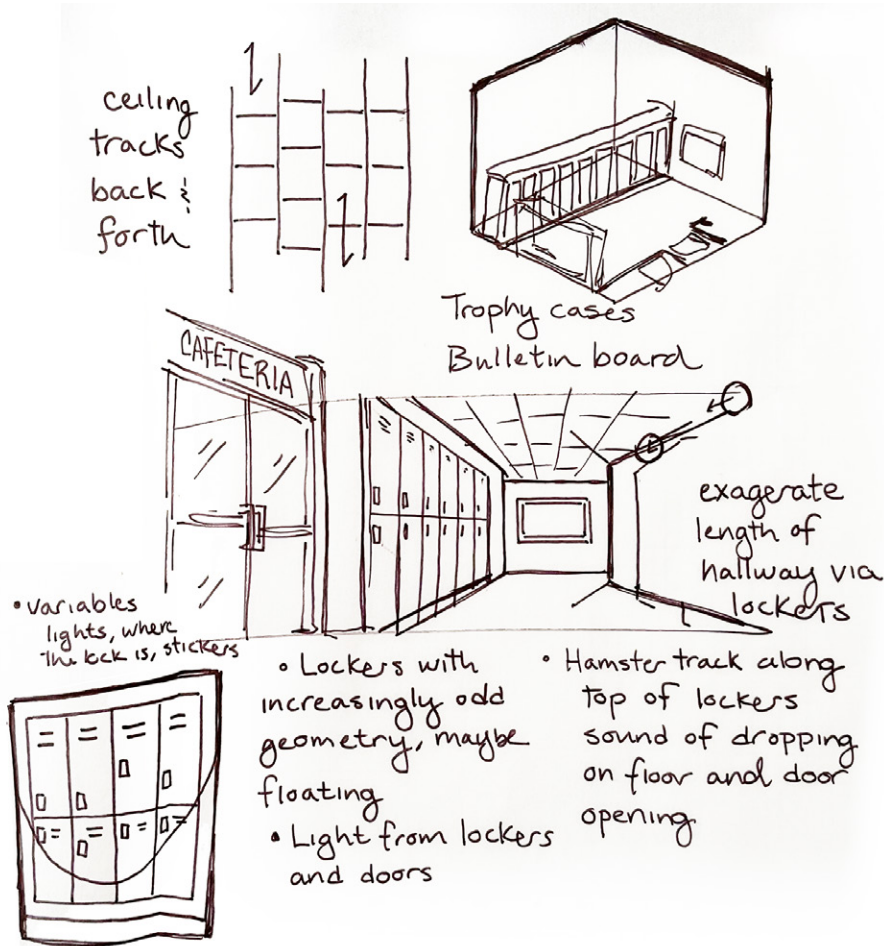 ceiling
tracks
back &
forth
Trophy cases
Bulletin board
CAFETERIA
exagerate
length of
hallway via
lockers
• variables
lights, where
the lock is, stickers
• Lockers with
increasingly odd
geometry, maybe
floating
• Light from lockers
and doors
• Hamster track along
top of lockers
sound of dropping
on floor and door
opening